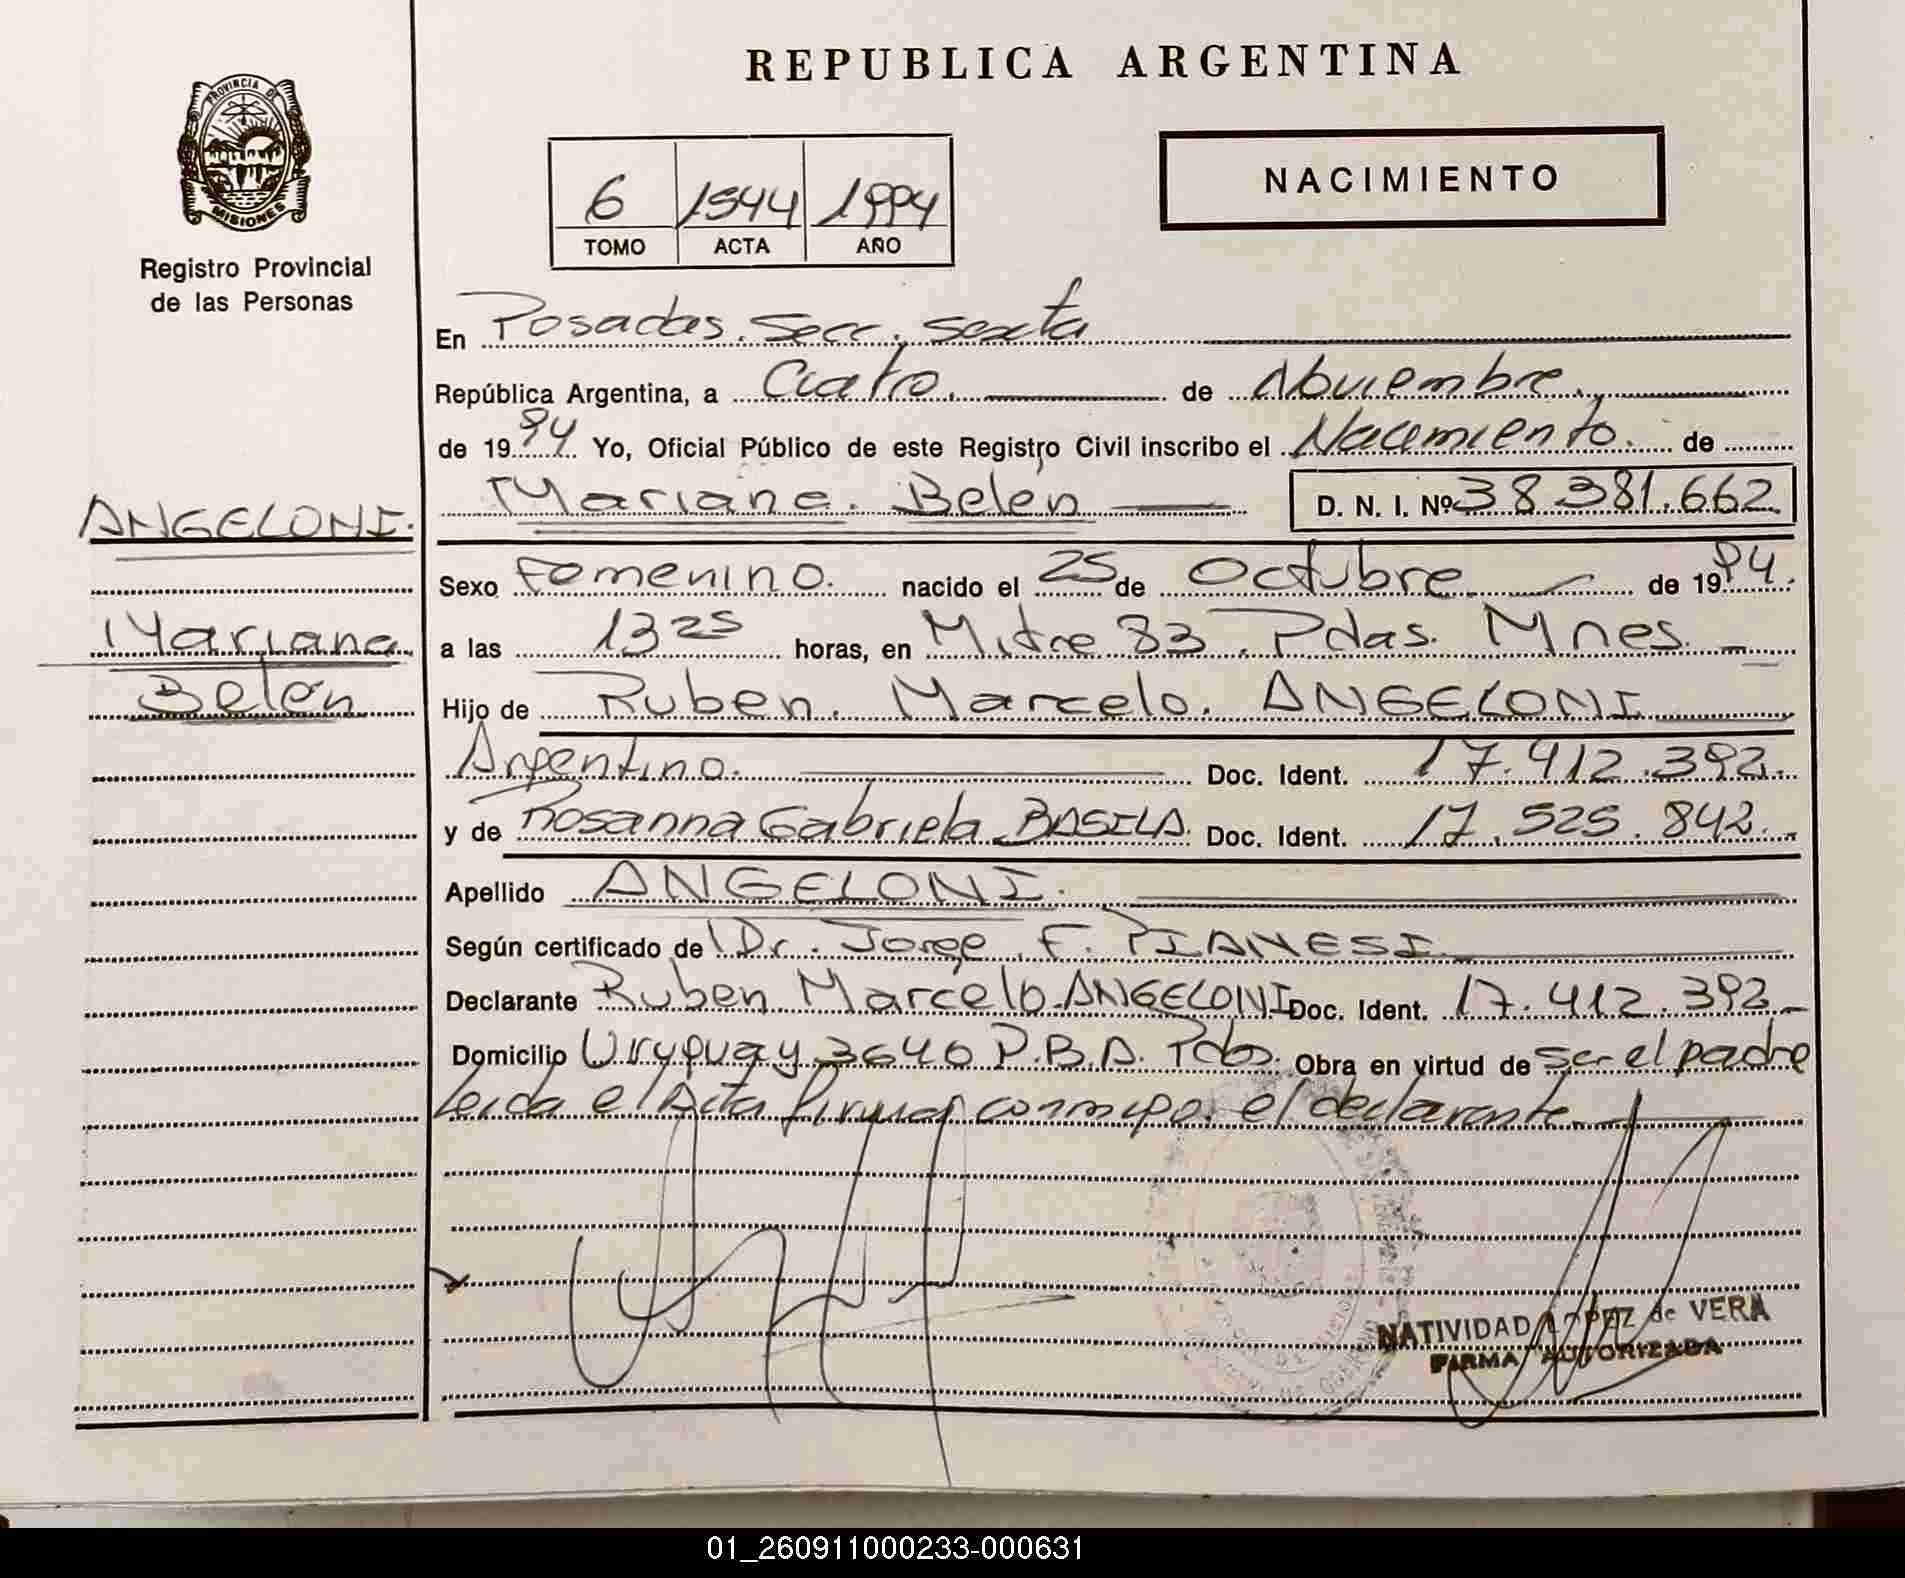 REPUBLICA ARGENTINA
PROVINCIA DE
MISIONES
Registro Provincial
de las Personas
6 1544 1994
TOMO ACTA AÑO
NACIMIENTO
En Posadas. Secc. Sexta
República Argentina, a Cuatro. de Noviembre.
de 1994 Yo, Oficial Público de este Registro Civil inscribo el Nacimiento. de
Mariana. Belén D. N. I. Nº 38.381.662
ANGELONI.
Mariana
Belén
Sexo Femenino. nacido el 25 de Octubre de 1994.
a las 13 25 horas, en Mitre 83. Pdas. Mnes.
Hijo de Ruben. Marcelo. ANGELONI
Argentino. Doc. Ident. 17.412.392.
y de Rosanna Gabriela BASILA. Doc. Ident. 17.525.842.
Apellido ANGELONI.
Según certificado de Dr. Jorge F. PIANESI
Declarante Ruben Marcelo ANGELONI Doc. Ident. 17.412.392
Domicilio Uruguay 3640 P.B.A. Pdas. Obra en virtud de ser el padre
Leida el Acta firma conmigo el declarante
NATIVIDAD LOPEZ de VERA
FIRMA AUTORIZADA
01_260911000233-000631